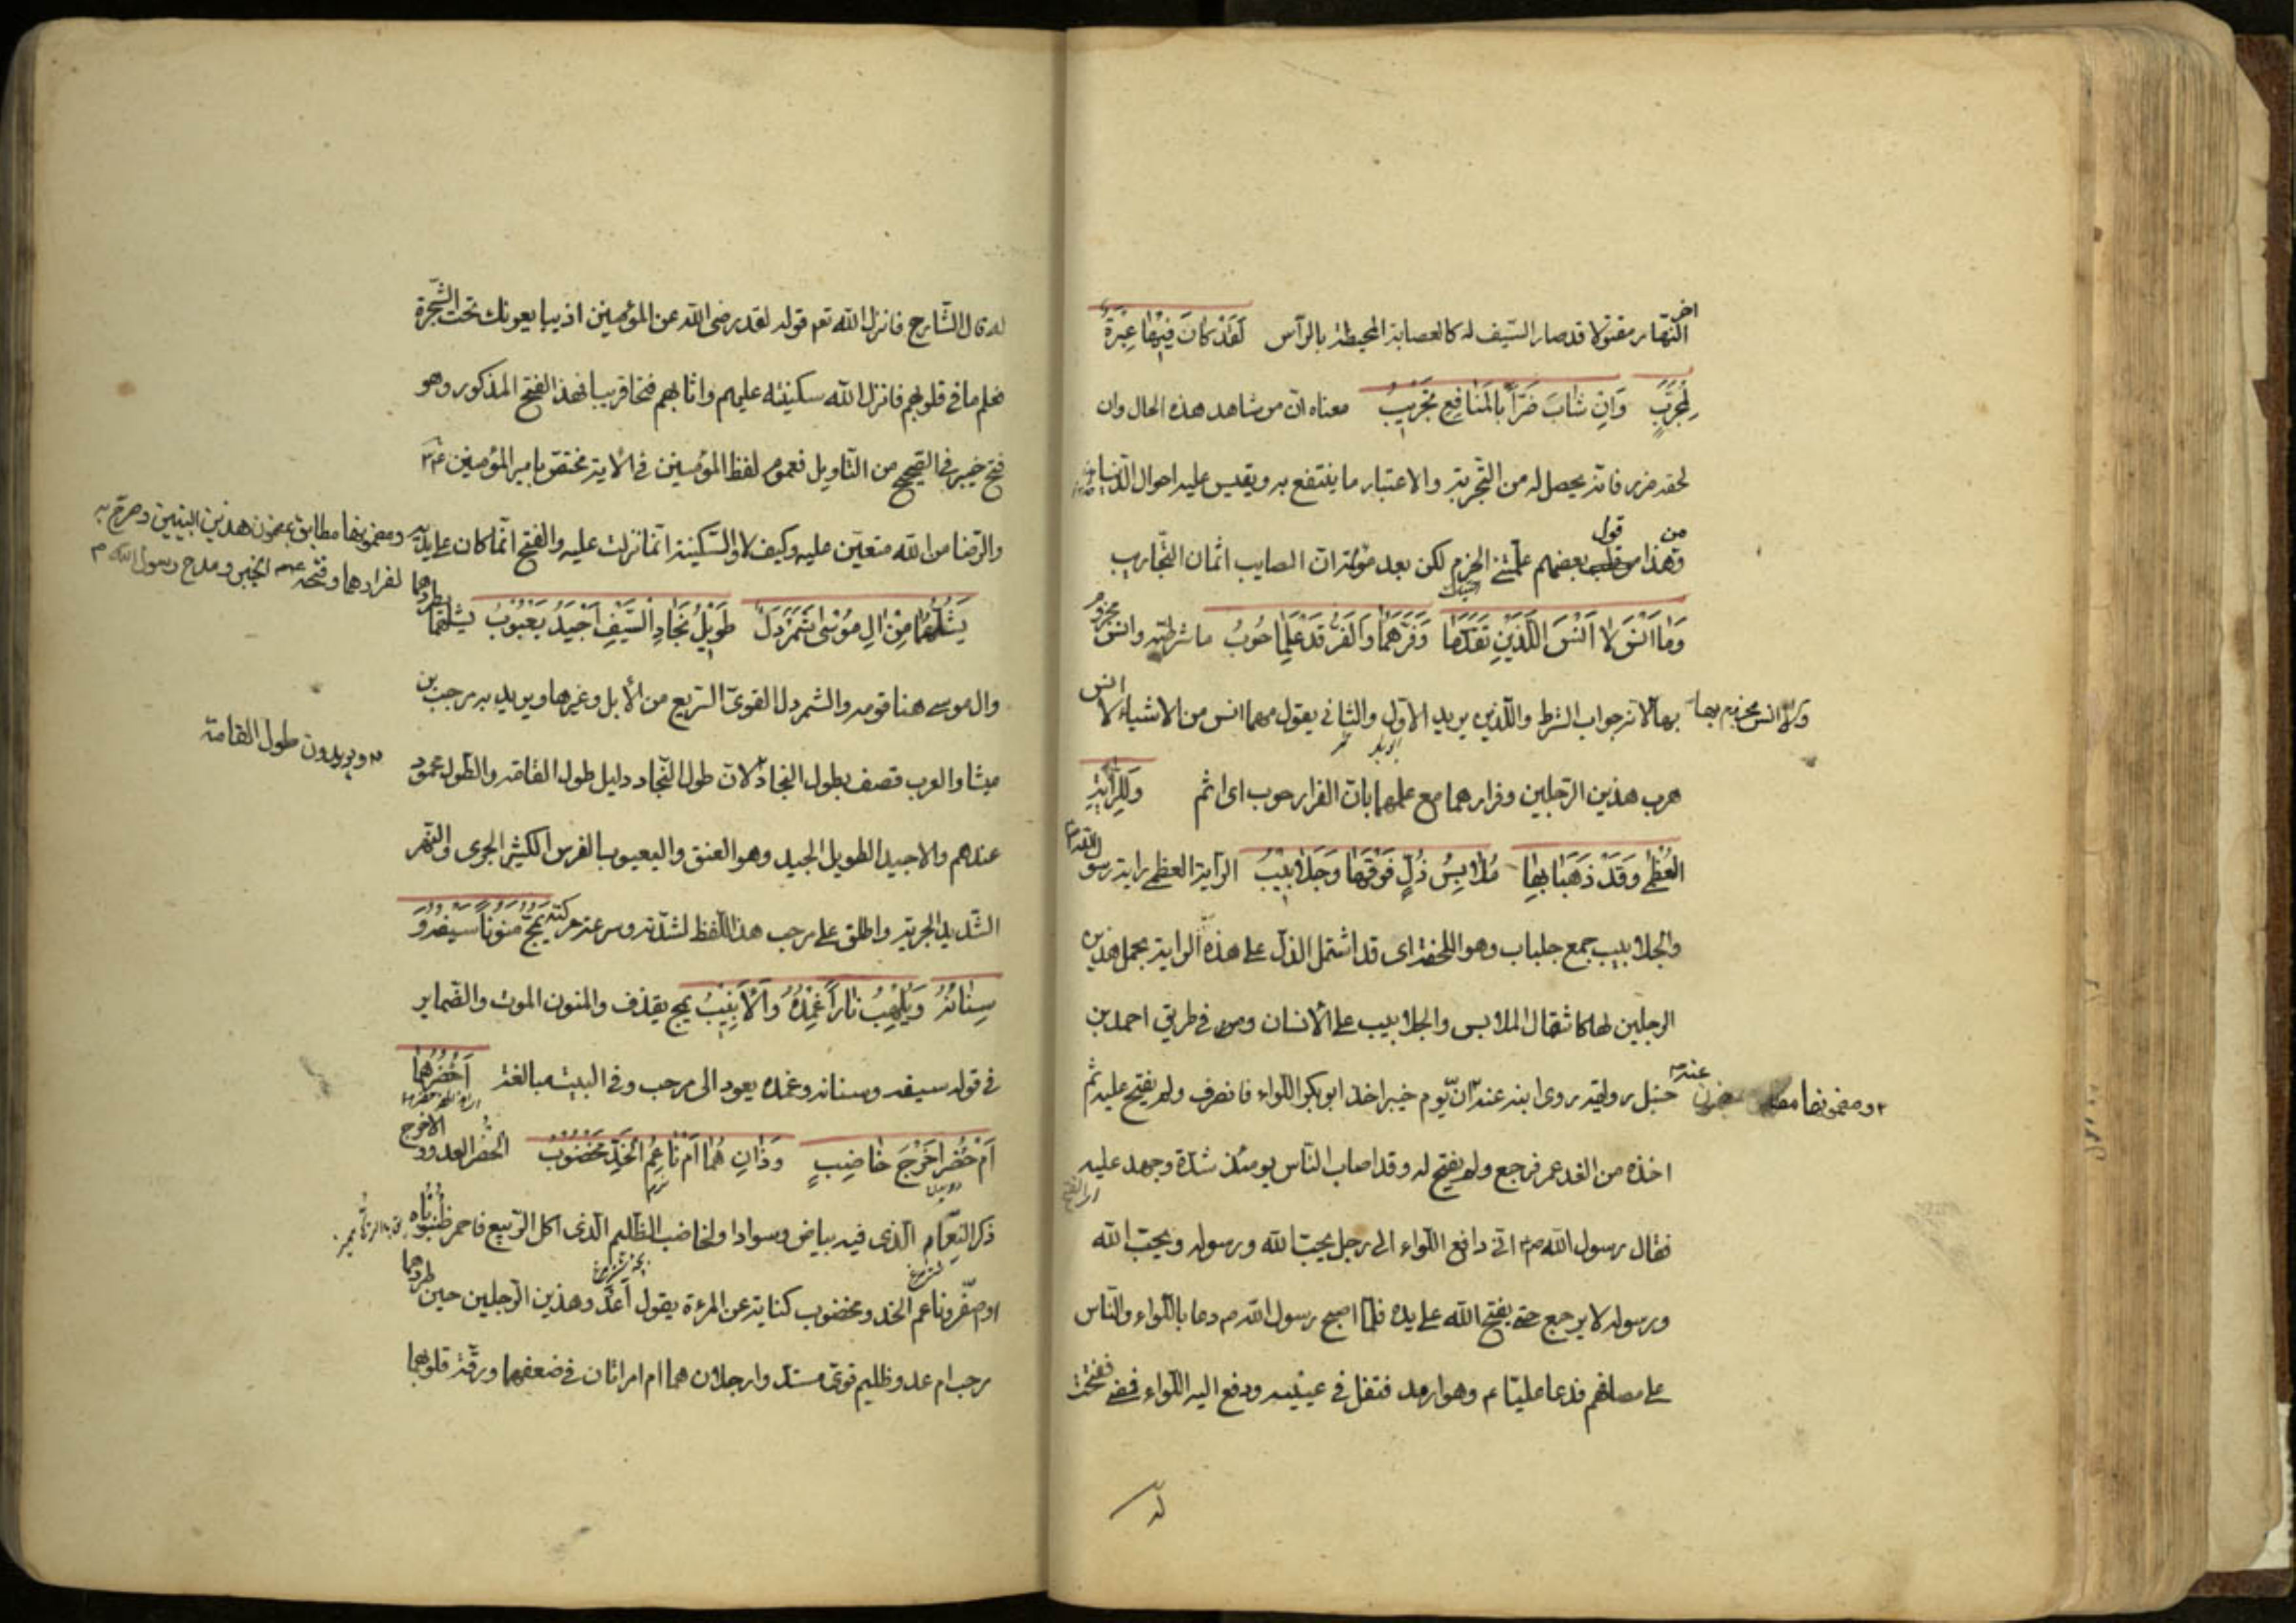 آخر
النهار مقتولا قد صار السيف له كالعصابة المحيطة بالرأس لَقَدْ كَانَ فِيهَا عِبْرَةٌ
لِمُجَرِّبٍ وَإِنْ شَابَ ضَرّاً بِالمَنَافِعِ تَجْرِيبُ معناه ان من شاهد هذه الحال وان
لحقه ضرر فانه يحصل له من التجربة والاعتبار ما ينتفع به ويقيس عليه احوال الدنيا
من قول
وهذا بعضهم علمتني الحزم لكن بعد مؤلمة ان المصايب اثمان التجاريب
وَمَا أَنْسَ لَا أَنْسَ اللَّذَيْنِ تَقَدَّمَا وَفَرَّهُمَا وَالفَرُّ قَدْ عَلِمَا حُوبُ ما شرطية وانس مجزوم
بها لانه جواب الشرط واللذين يريد الاول والثاني يقول مهما انس من الاشياء لا انس
ولا انس مجزوم بها
هرب هذين الرجلين وفرارهما مع علمهما بان الفرار حوب اى اثم وَلِلرَّايَةِ
العُظْمَى وَقَدْ ذَهَبَا بِهَا مَلَابِسُ ذُلٍّ فَوْقَهَا وَجَلَابِيبُ الراية العظمى راية رسول الله
والجلابيب جمع جلباب وهو الملحفة اى قد اشتمل الذل على هذه الراية بحمل هذين
الرجلين لها كاشتمال الملابس والجلابيب على الانسان ومن في طريق احمد بن
حنبل روايته روى ابنه عنه ان يوم خيبر اخذ ابو بكر اللواء فانصرف ولم يفتح عليه ثم
اخذه من الغد عمر فرجع ولم يفتح له وقد اصاب الناس يومئذ شدة وجهد عليه
فقال رسول الله ص اني دافع اللواء الى رجل يحب الله ورسوله ويحب الله
ورسوله لا يرجع حتى يفتح الله على يده فلما اصبح رسول الله ص دعا باللواء والناس
على مصافهم فدعا عليا ع وهو ارمد فتفل في عينيه ودفع اليه اللواء ففتحت
له
له قال الشارح فانزل الله تعم قوله لقد رضى الله عن المؤمنين اذ يبايعونك تحت الشجرة
فعلم ما في قلوبهم فانزل الله سكينته عليهم واثابهم فتحا قريبا فهذا الفتح المذكور وهو
فتح خيبر في الصحيح من التأويل فعموم لفظ المؤمنين في الآية مختص بامير المؤمنين ع
والرضا من الله متعين عليه وكيف لا والسكينة انما نزلت عليه والفتح انما كان على يديه
ومضمونها مطابق بمضمون هذين البيتين
يَشُلُّهُمَا مِنْ آلِ مُوسَى شَمَرْدَلٌ طَوِيلُ نَجَادِ السَّيْفِ أَجْيَدُ يَعْبُوبُ يشلهما يطردهما
وال موسى هنا قومه والشمردل القوى السريع من الابل وغيرها ويريد به مرحب بن
ميشا والعرب تصف بطول النجاد لان طول النجاد دليل طول القامة والطول ممدوح
ويريدون طول القامة
عندهم والاجيد الطويل الجيد وهو العنق واليعبوب الفرس الكثير الجرى والنهر
الشديد الجرية واطلق على مرحب هذا اللفظ لشدته وسرعة حركته يَمُجُّ مَنُوناً سَيْفُهُ وَ
سِنَانُهُ وَيَلْهَبُ نَاراً غِمْدُهُ وَالأَنَابِيبُ يمج يقذف والمنون الموت والضماير
في قوله سيفه وسنانه وغمده يعود الى مرحب وفي البيت مبالغة أَحُضْرُهُمَا
أَمْ حُضْرُ أَخْرَجَ خَاضِبٍ وَذَانِ هُمَا أَمْ نَاعِمُ الخَدِّ مَخْضُوبُ الحضر العدو والاخرج
ذكر النعام الذى فيه بياض وسواد والخاضب الظليم الذى اكل الربيع فاحمر ظنبوباه
او اصفر وناعم الخد ومخضوب كناية عن المرءة يقول أعدو هذين الرجلين حين طردهما
مرحب ام عدو ظليم قوى مسند وارجلان هما ام امراتان في ضعفهما ورقة قلوبهما